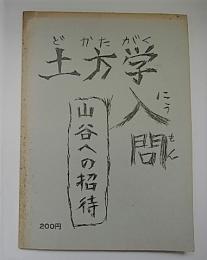 どかたがく
土方学
にうもん
入問
山谷への招待
200円